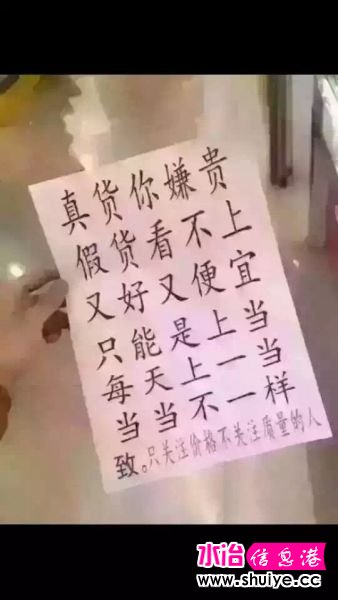 真货你嫌贵
假货看不上
又好又便宜
只能是上当
每天上一当
当当不一样
致。只关注价格不关注质量的人
水冶信息港
www.shuiye.cc